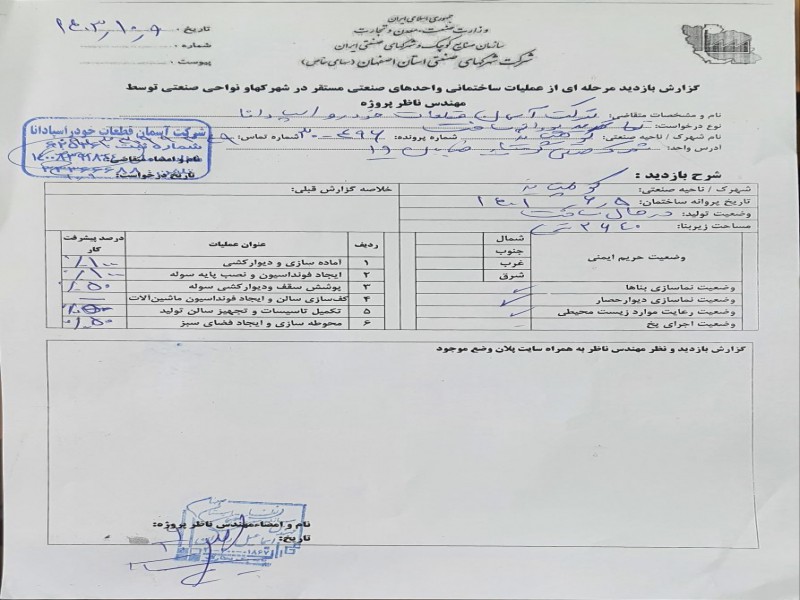 جمهوری اسلامی ایران
وزارت صنعت، معدن و تجارت
سازمان صنایع کوچک و شهرکهای صنعتی ایران
شرکت شهرکهای صنعتی استان اصفهان (سهامی خاص)
تاریخ: ۱۴۰۳/۱۰/۹
شماره:
پیوست:
گزارش بازدید مرحله ای از عملیات ساختمانی واحدهای صنعتی مستقر در شهرکها و نواحی صنعتی توسط
مهندس ناظر پروژه
نام و مشخصات متقاضی: شرکت آسمان قطعات خودرو اسپادانا
نوع درخواست: پروانه ساخت
نام شهرک / ناحیه صنعتی: شماره پرونده: شماره تماس:
آدرس واحد: شهرک صنعتی خیابان ۱۹
شرکت آسمان قطعات خودرو اسپادانا
شماره ثبت
نام و امضاء متقاضی:
تاریخ درخواست:
شرح بازدید:
شهرک / ناحیه صنعتی:
خلاصه گزارش قبلی:
تاریخ پروانه ساختمان: ۱۴۰۱/۶/۵
وضعیت تولید: در حال ساخت
مساحت زیربنا:
وضعیت حریم ایمنی
شمال
جنوب
غرب
شرق
وضعیت نماسازی بناها
وضعیت نماسازی دیوارحصار ✓
وضعیت رعایت موارد زیست محیطی ✓
وضعیت اجرای پخ
ردیف عنوان عملیات درصد پیشرفت کار
۱ آماده سازی و دیوارکشی ٪۱۰۰
۲ ایجاد فونداسیون و نصب پایه سوله ٪۱۰۰
۳ پوشش سقف ودیوارکشی سوله ٪۵۰
۴ کف‌سازی سالن و ایجاد فونداسیون ماشین‌آلات —
۵ تکمیل تاسیسات و تجهیز سالن تولید
۶ محوطه سازی و ایجاد فضای سبز ٪۵۰
گزارش بازدید و نظر مهندس ناظر به همراه سایت پلان وضع موجود
نام و امضاء مهندس ناظر پروژه:
تاریخ: